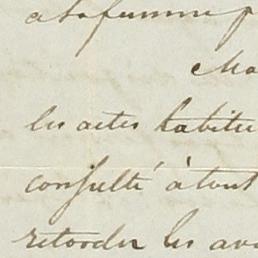 a sa femme p
Ma
les actes habitu
consulté à tout
retarder les av